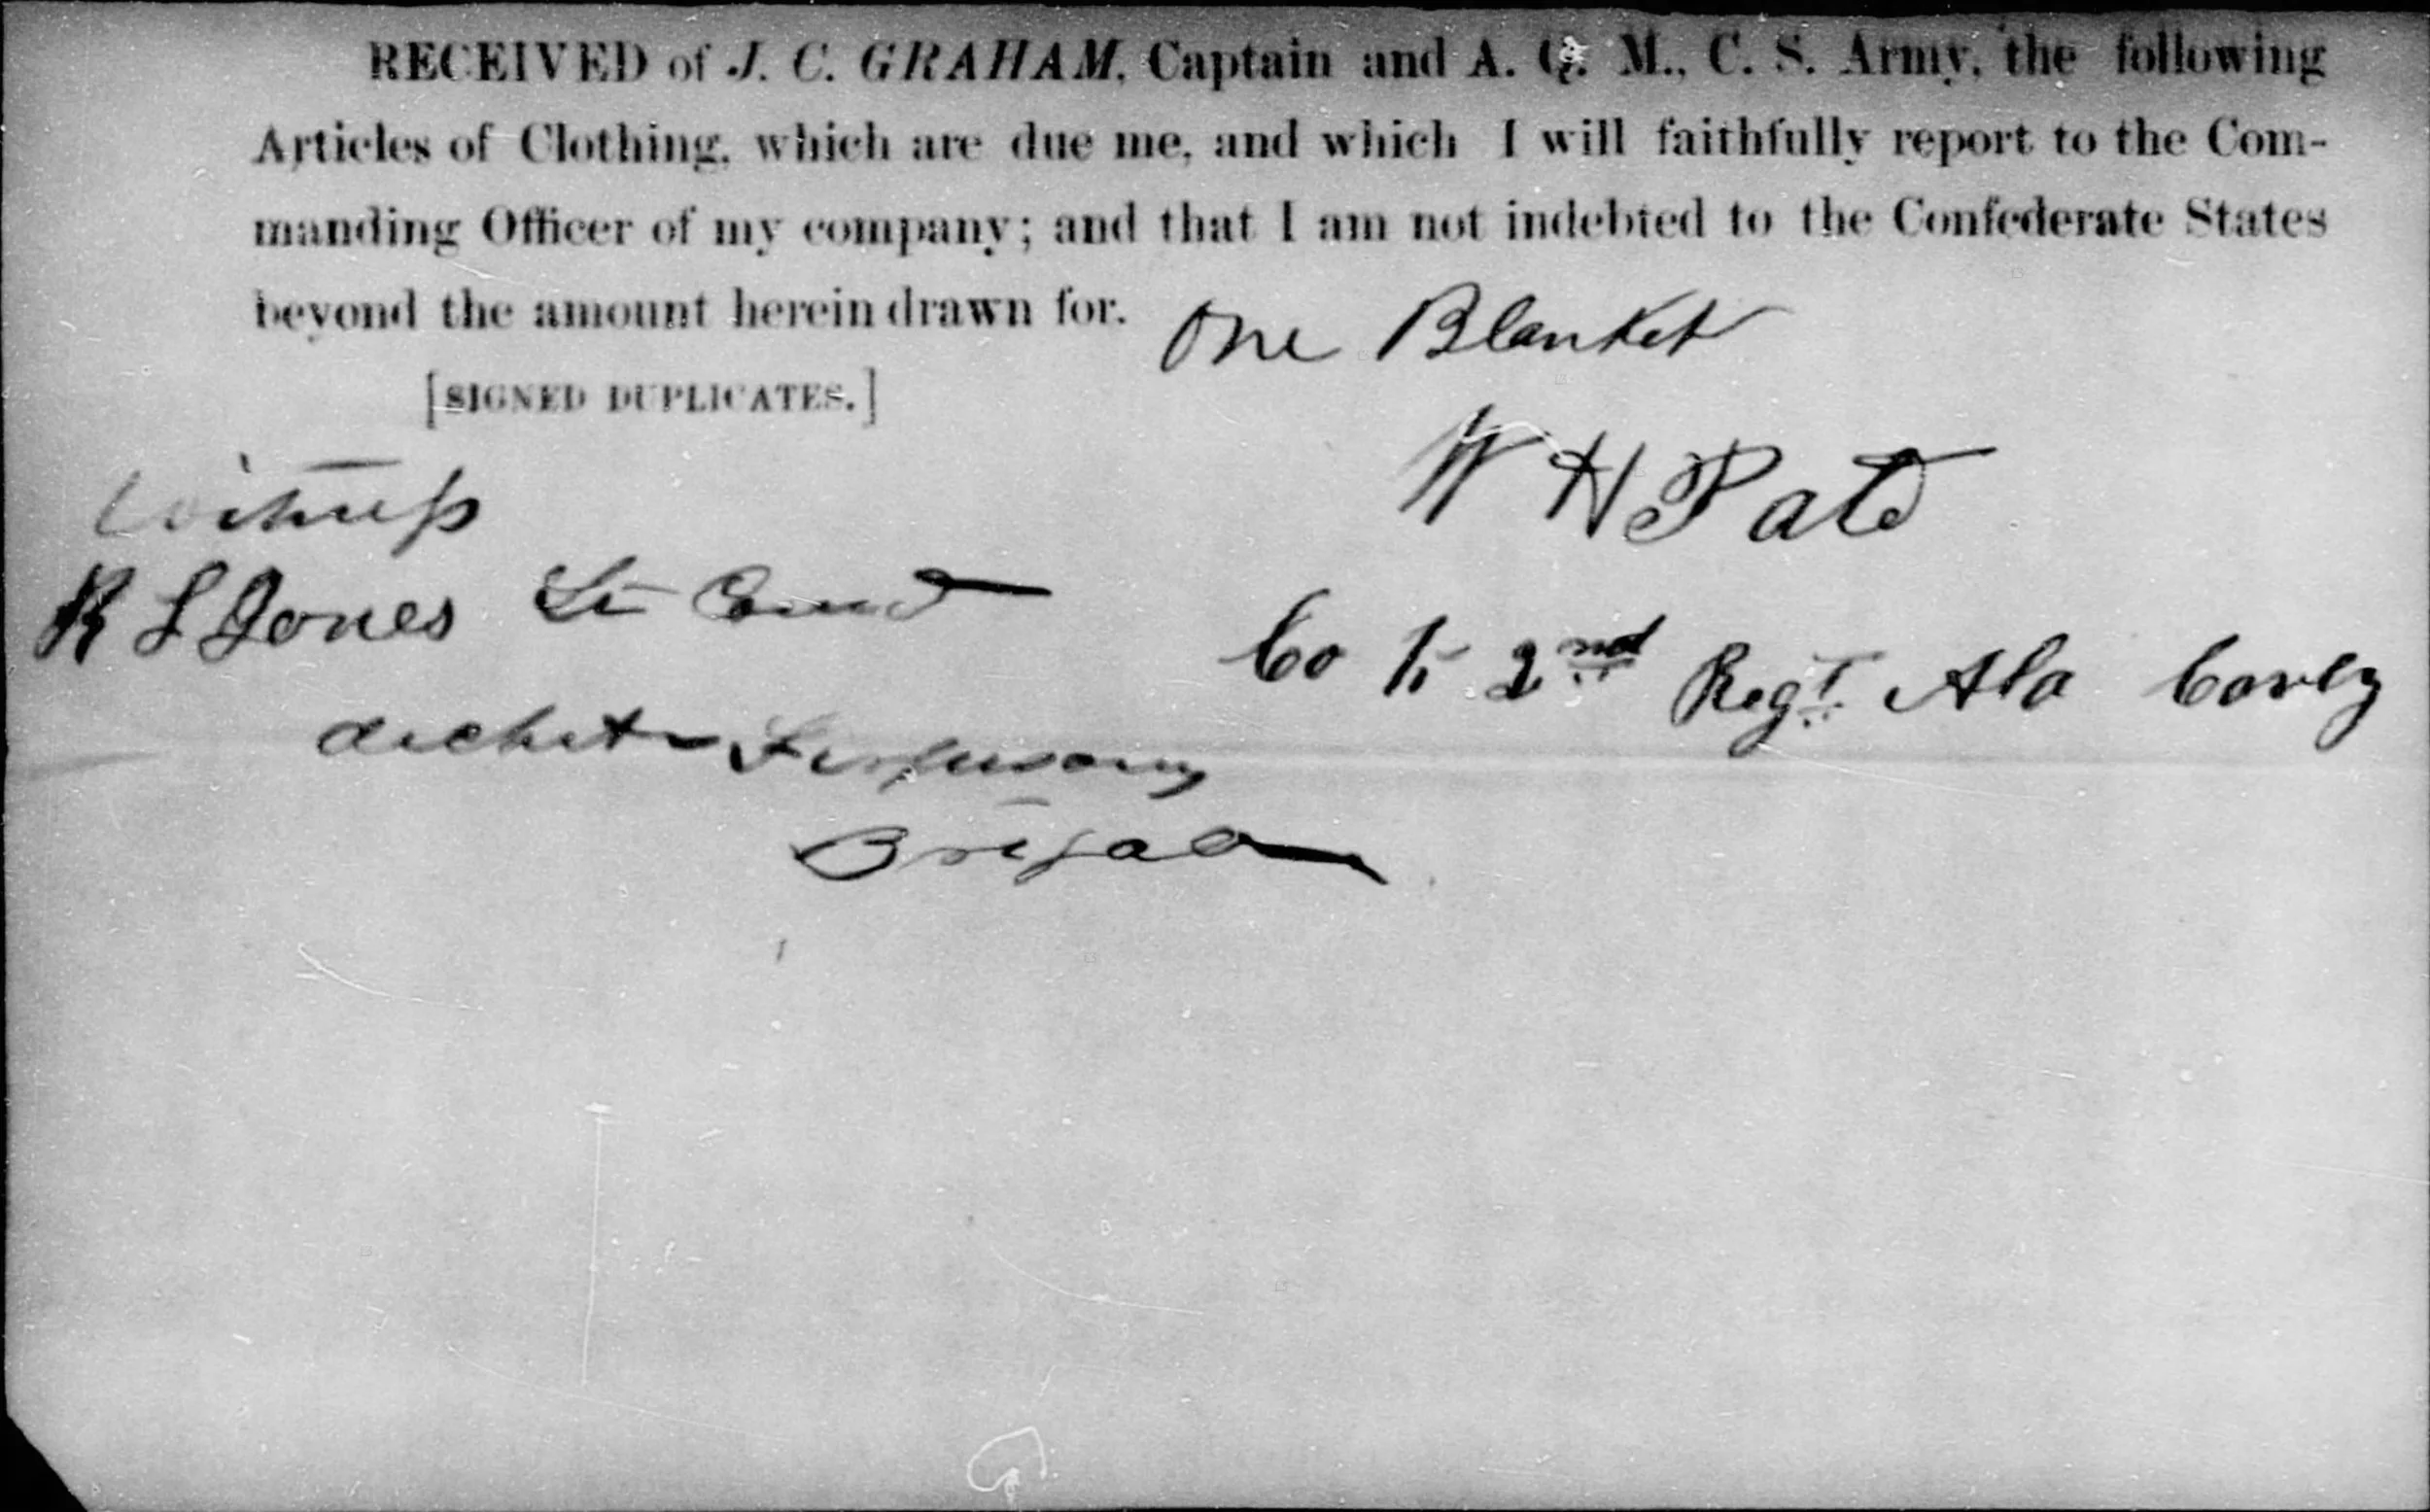 RECEIVED of J. C. GRAHAM, Captain and A. Q. M., C. S. Army, the following
Articles of Clothing, which are due me, and which I will faithfully report to the Com-
manding Officer of my company; and that I am not indebted to the Confederate States
beyond the amount herein drawn for. One Blanket
[SIGNED DUPLICATES.]
W H Pate
Witness
R L Jones Lt Comd
Co K 2nd Regt Ala Cavly
Fergusons
Brigade